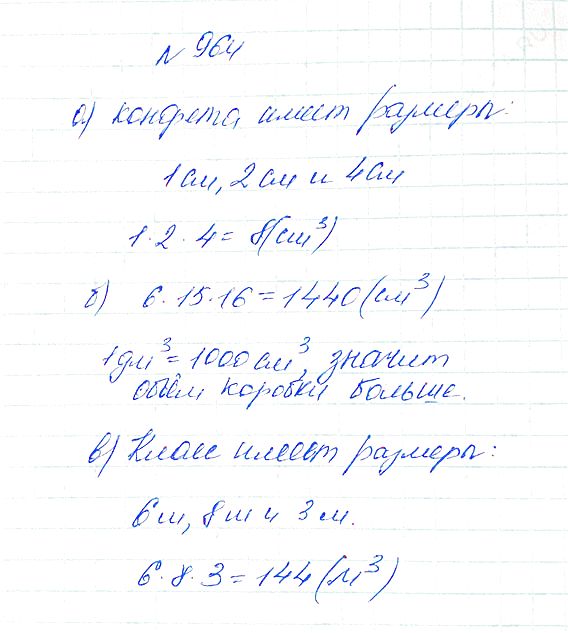 № 964
а) конфета имеет размеры:
1 см, 2 см и 4 см
1·2·4 = 8(см³)
б) 6·15·16 = 1440(см³)
1 дм³ = 1000 см³, значит
объём коробки больше.
в) Класс имеет размеры:
6 м, 8 м и 3 м.
6·8·3 = 144(м³)